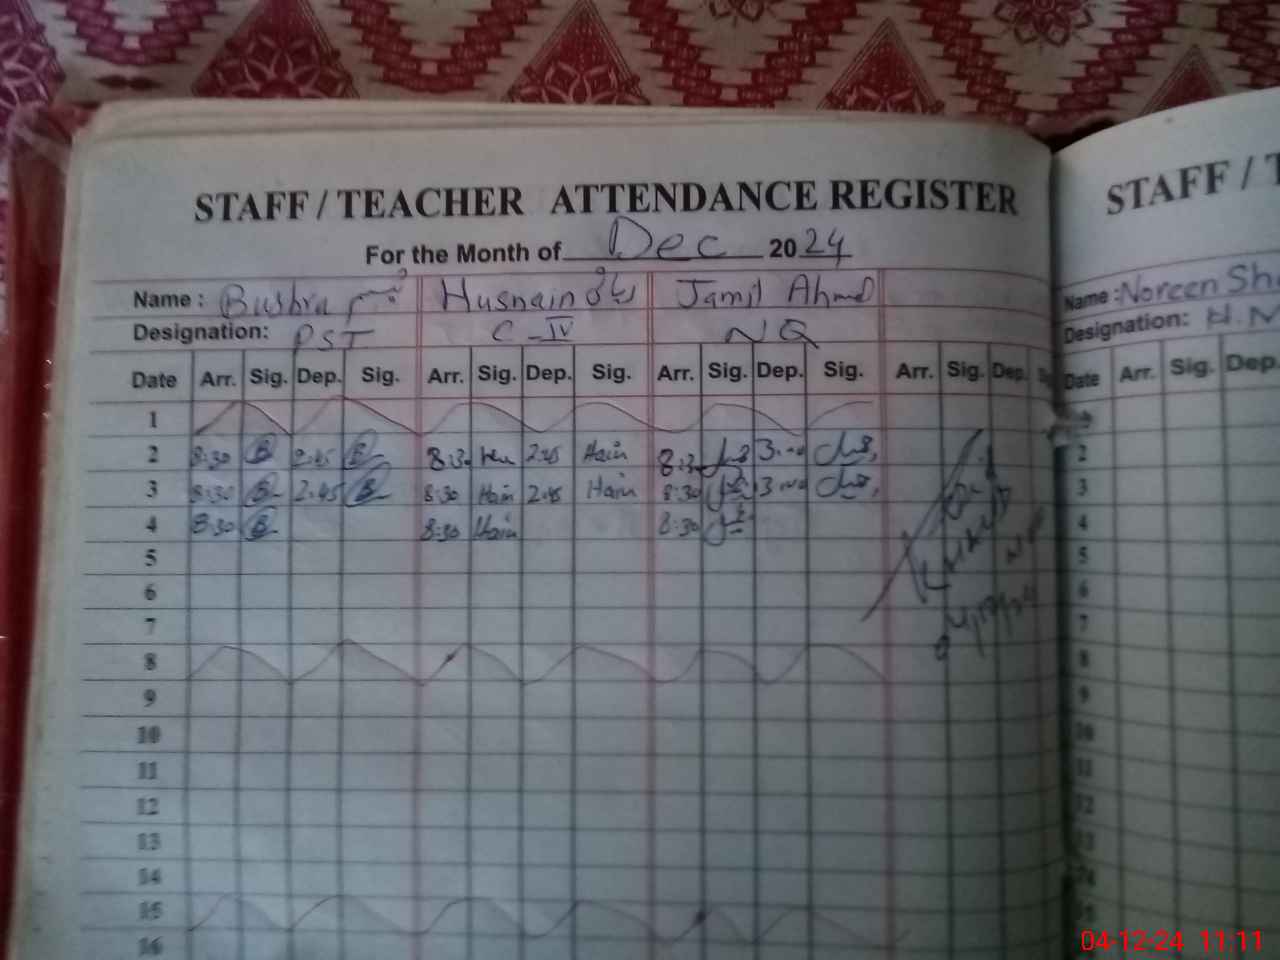 STAFF / TEACHER ATTENDANCE REGISTER
For the Month of Dec 2024
Name: Bushra Husnain Jamil Ahmad
Designation: PST C-IV NQ
Date Arr. Sig. Dep. Sig. Arr. Sig. Dep. Sig. Arr. Sig. Dep. Sig. Arr. Sig. Dep.
1
2 8:30 B 2:45 B 8:30 2:45 Hain 8:30 3:00
3 8:30 B 2:45 B 8:30 Hain 2:45 Hain 8:30 3:00
4 8:30 B 8:30 Hain 8:30
5
6
7
8
9
10
11
12
13
14
15
16
STAFF / T
Name: Noreen Sh
Designation:
Date Arr. Sig. Dep.
2
3
4
5
6
7
8
9
10
11
12
13
04-12-24 11:11